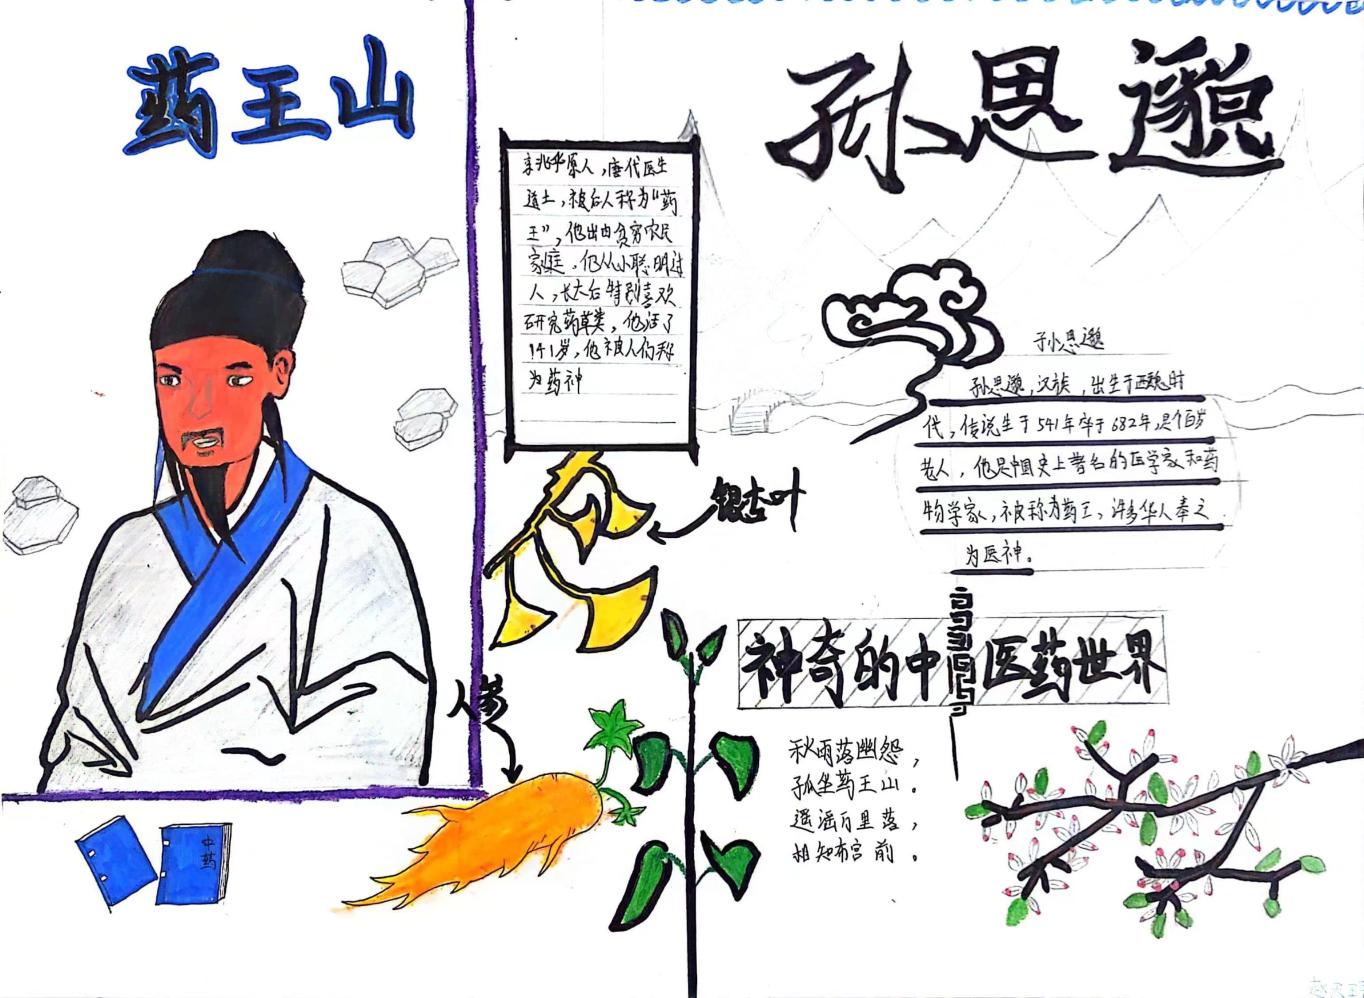 药王山
孙思邈
京兆华原人，唐代医生
道士，被后人称为“药
王”，他出由贫穷农民
家庭，他从小聪明过
人，长大后特别喜欢
研究药草类，他活了
141岁，他被人们称
为药神
孙思邈
孙思邈，汉族，出生于西魏时
代，传说生于541年卒于682年，是个百岁
老人，他是中国史上著名的医学家和药
物学家，被称为药王，许多华人奉之
为医神。
银杏叶
人参
神奇的中医药世界
秋雨落幽怨，
孤坐药王山。
遥遥万里落，
相知布宫前。
中药